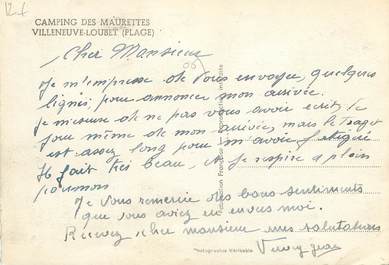 R.f
CAMPING DES MAURETTES
VILLENEUVE-LOUBET (PLAGE)
(06)
Cher Monsieur
Je m'empresse de vous envoyer, quelques
lignes, pour annoncer mon arrivée.
Je m'excuse de ne pas vous avoir ecrit le
jour même de mon arrivée, mais le trajet
est assez long pour m'avoir fatigué
Il fait très beau, et je respire a plein
poumons.
Je vous remercie des bons sentiments
que vous aviez en envers moi.
Recevez cher monsieur mes salutations
"Photographie Véritable"